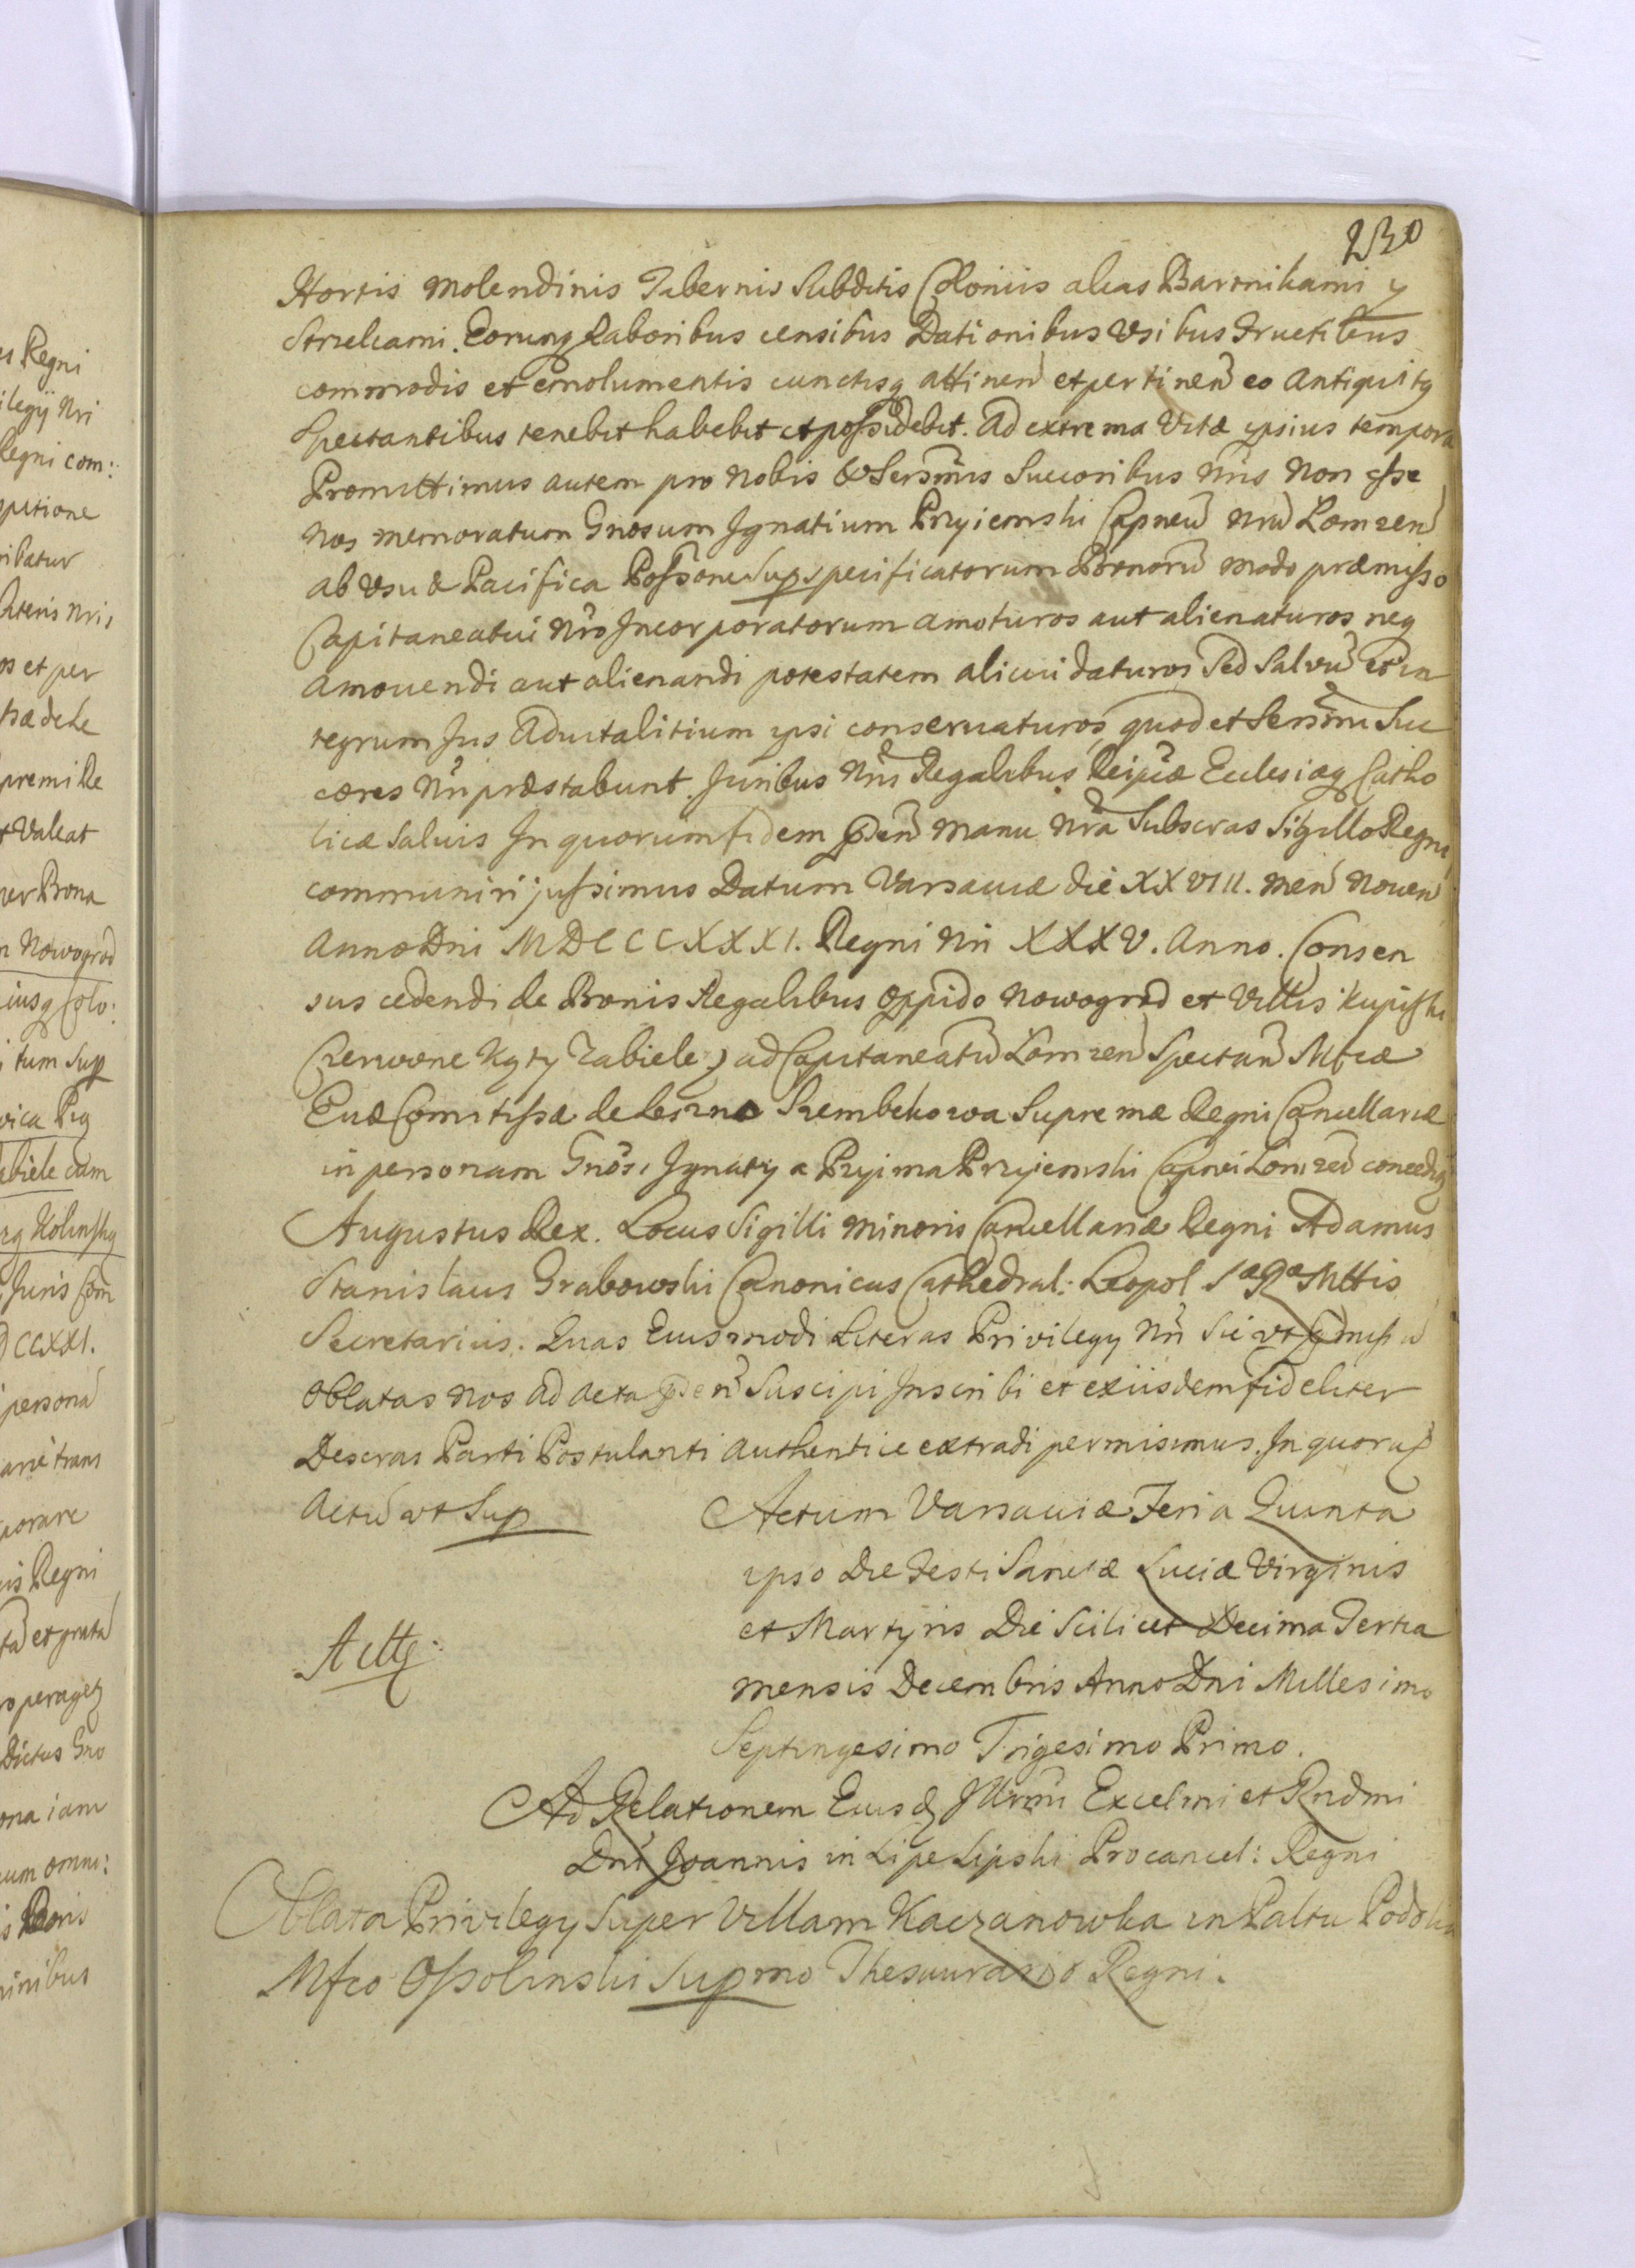 230
Hortis Molendinis Tabernis Subditis Coloniis alias Bartnikami y
Strzelcami. Eorumq Laboribus censibus Dationibus Usibus Fructibus
commodis et emolumentis cunctisq attinen et pertinen eo antiquitq
Spectantibus tenebit habebit et possidebit. Ad extrema Vitæ ipsius tempora
Promittimus autem pro Nobis & Sersmis Succoribus Nris Non esse
Nos memoratum Gnosum Ignatium Przyiemski Capneu Nru Lomzen
ab Usu & Pacifica Possone Sup specificatorum Bonoru modo præmisso
Capitaneatui Nro Incorporatorum amoturos aut alienaturos neq
amovendi aut alienandi potestatem alicui daturos Sed Salvu et in
tegrum Jus Advitalitium ipsi conservaturos, quod et Sersmi Suc
cores Nri præstabunt. Juribus Nris Regalibus Reipcæ Ecclesiæq Catho
licæ Salvis In quorum fidem pden Manu Nra Subscras Sigillo Regni
communiri jussimus Datum Varsaviæ die XXVIII. Men Noven
Anno Dni MDCCXXXI. Regni Nri XXXV. Anno. Consen
sus cedendi de Bonis Regalibus Oppido Nowogrod et Villis Kupiski
Czerwone Kąty Zabiele, ad Capitaneatu Lomzen Spectan Mfcæ
Evæ Comitissæ de Leszno Szembekowa Supremæ Regni Cancellariæ
in personam Gnosi Ignaty a Przyima Przyiemski Capnei Lomzen conceditq
Augustus Rex. Locus Sigilli Minoris Cancellariæ Regni Adamus
Stanislaus Grabowski Canonicus Cathedral: Leopol SæRæ Mttis
Secretarius. Quas Eiusmodi Literas Privilegy Nri Sic ut pmiss
Oblatas Nos ad Acta pden Suscipi Inscribi et exiisdem fideliter
Descras Parti Postulanti authentice extradi permisimus. In quorum
Actu ut Sup
Actum Varsaviæ Feria Quinta
ipso Die Festi Sanctæ Luciæ Virginis
et Martyris Die Scilicet Decima Tertia
mensis Decembris Anno Dni Millesimo
Septingesimo Trigesimo Primo.
Ad Relationem Eiusd Illrmi Excelmi et Rndmi
Dni Joannis in Lipe Lipski Procancel: Regni
Oblata Privilegy Super Villam Kaczanowka in Paltu Podolia
Mfco Ossolinski Supmo Thesaurario Regni.